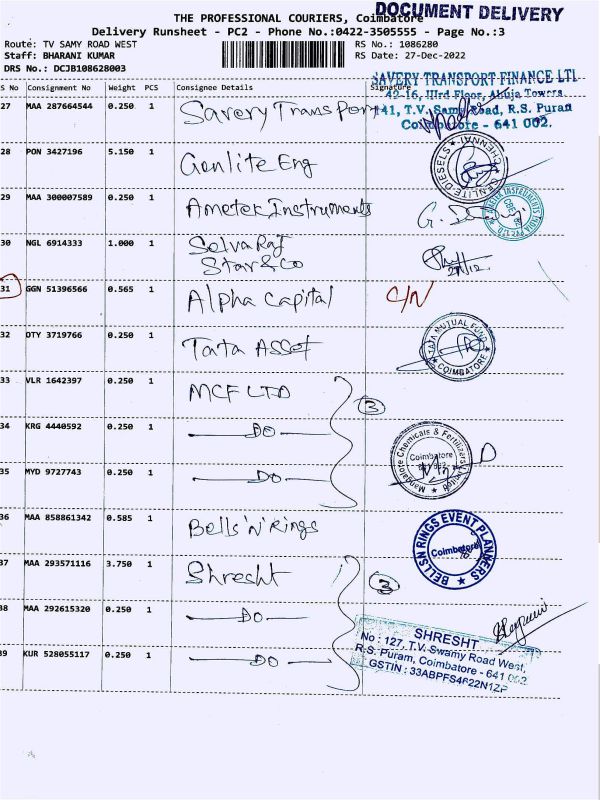 DOCUMENT DELIVERY
THE PROFESSIONAL COURIERS, Coimbatore
Delivery Runsheet - PC2 - Phone No.:0422-3505555 - Page No.:3
Route: TV SAMY ROAD WEST RS No.: 1086280
Staff: BHARANI KUMAR RS Date: 27-Dec-2022
DRS No.: DCJB108628003
S No Consignment No Weight PCS Consignee Details Signature
SAVERY TRANSPORT FINANCE LTD
42-16, IIIrd Floor, Abuja Towers
141, T.V. Samy Road, R.S. Puram
Coimbatore - 641 002.
27 MAA 287664544 0.250 1 Savery Transport
28 PON 3427196 5.150 1 Genlite Eng
GENLITE DIESELS CHENNAI
29 MAA 300007589 0.250 1 Ametek Instruments
AMETEK INSTRUMENTS INDIA PVT. LTD. CBE
30 NGL 6914333 1.000 1 Selva Raj
Star & Co
27/12
31 GGN 51396566 0.565 1 Alpha Capital C/N
32 DTY 3719766 0.250 1 Tata Asset
TATA MUTUAL FUND COIMBATORE
33 VLR 1642397 0.250 1 MCF LTD
34 KRG 4440592 0.250 1 — DO — 3
35 MYD 9727743 0.250 1 — DO —
Mangalore Chemicals & Fertilizers Limited
Coimbatore
36 MAA 858861342 0.585 1 Bells 'n' Rings
BELLS N RINGS EVENT PLANNERS
Coimbatore
37 MAA 293571116 3.750 1 Shresht 3
38 MAA 292615320 0.250 1 — DO —
39 KUR 528055117 0.250 1 — DO —
SHRESHT
No : 127, T.V. Swamy Road West,
R.S. Puram, Coimbatore - 641 002.
GSTIN : 33ABPFS4622N1ZP